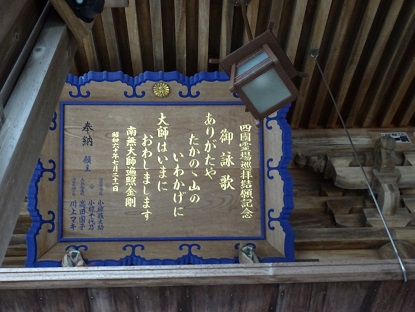 四國霊場巡拝結願記念
御詠歌
ありがたや
たかのゝ山の
いわかげに
大師はいまに
おわしまします
南無大師遍照金剛
昭和六十年七月二十一日
奉納
願主
川上マキ